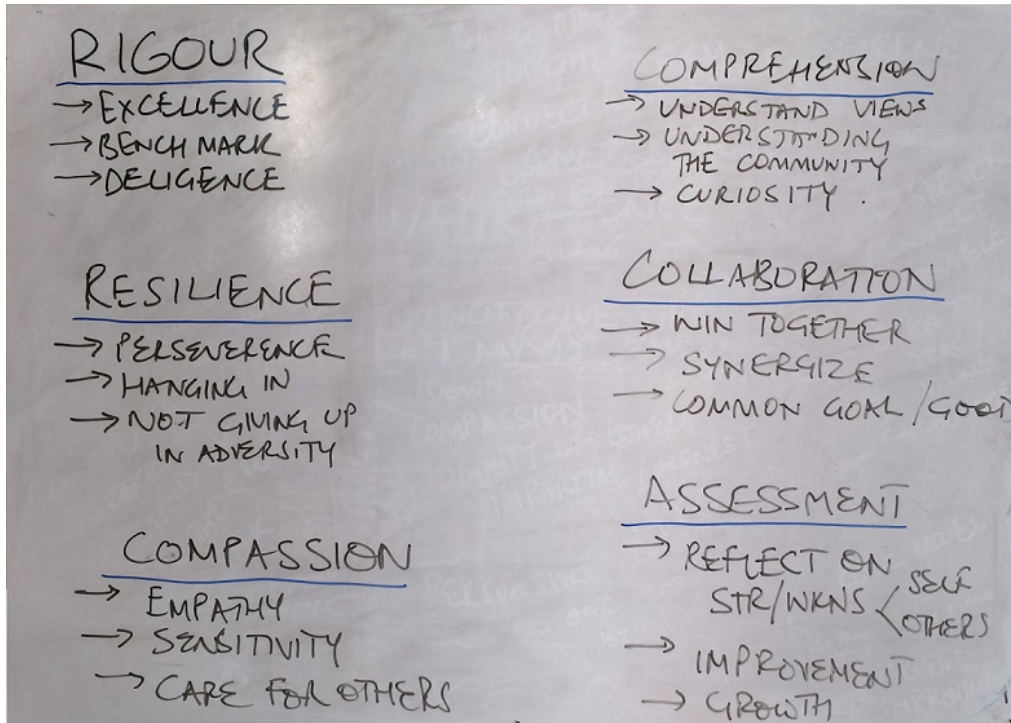 RIGOUR
→ EXCELLENCE
→ BENCH MARK
→ DELIGENCE
RESILIENCE
→ PERSEVERENCE
→ HANGING IN
→ NOT GIVING UP
IN ADVERSITY
COMPASSION
→ EMPATHY
→ SENSITIVITY
→ CARE FOR OTHERS
COMPREHENSION
→ UNDERSTAND VIEWS
→ UNDERSTANDING
THE COMMUNITY
→ CURIOSITY.
COLLABORATION
→ WIN TOGETHER
→ SYNERGIZE
→ COMMON GOAL/GOOD
ASSESSMENT
→ REFLECT ON
STR/WKNS < SELF
OTHERS
→ IMPROVEMENT
→ GROWTH